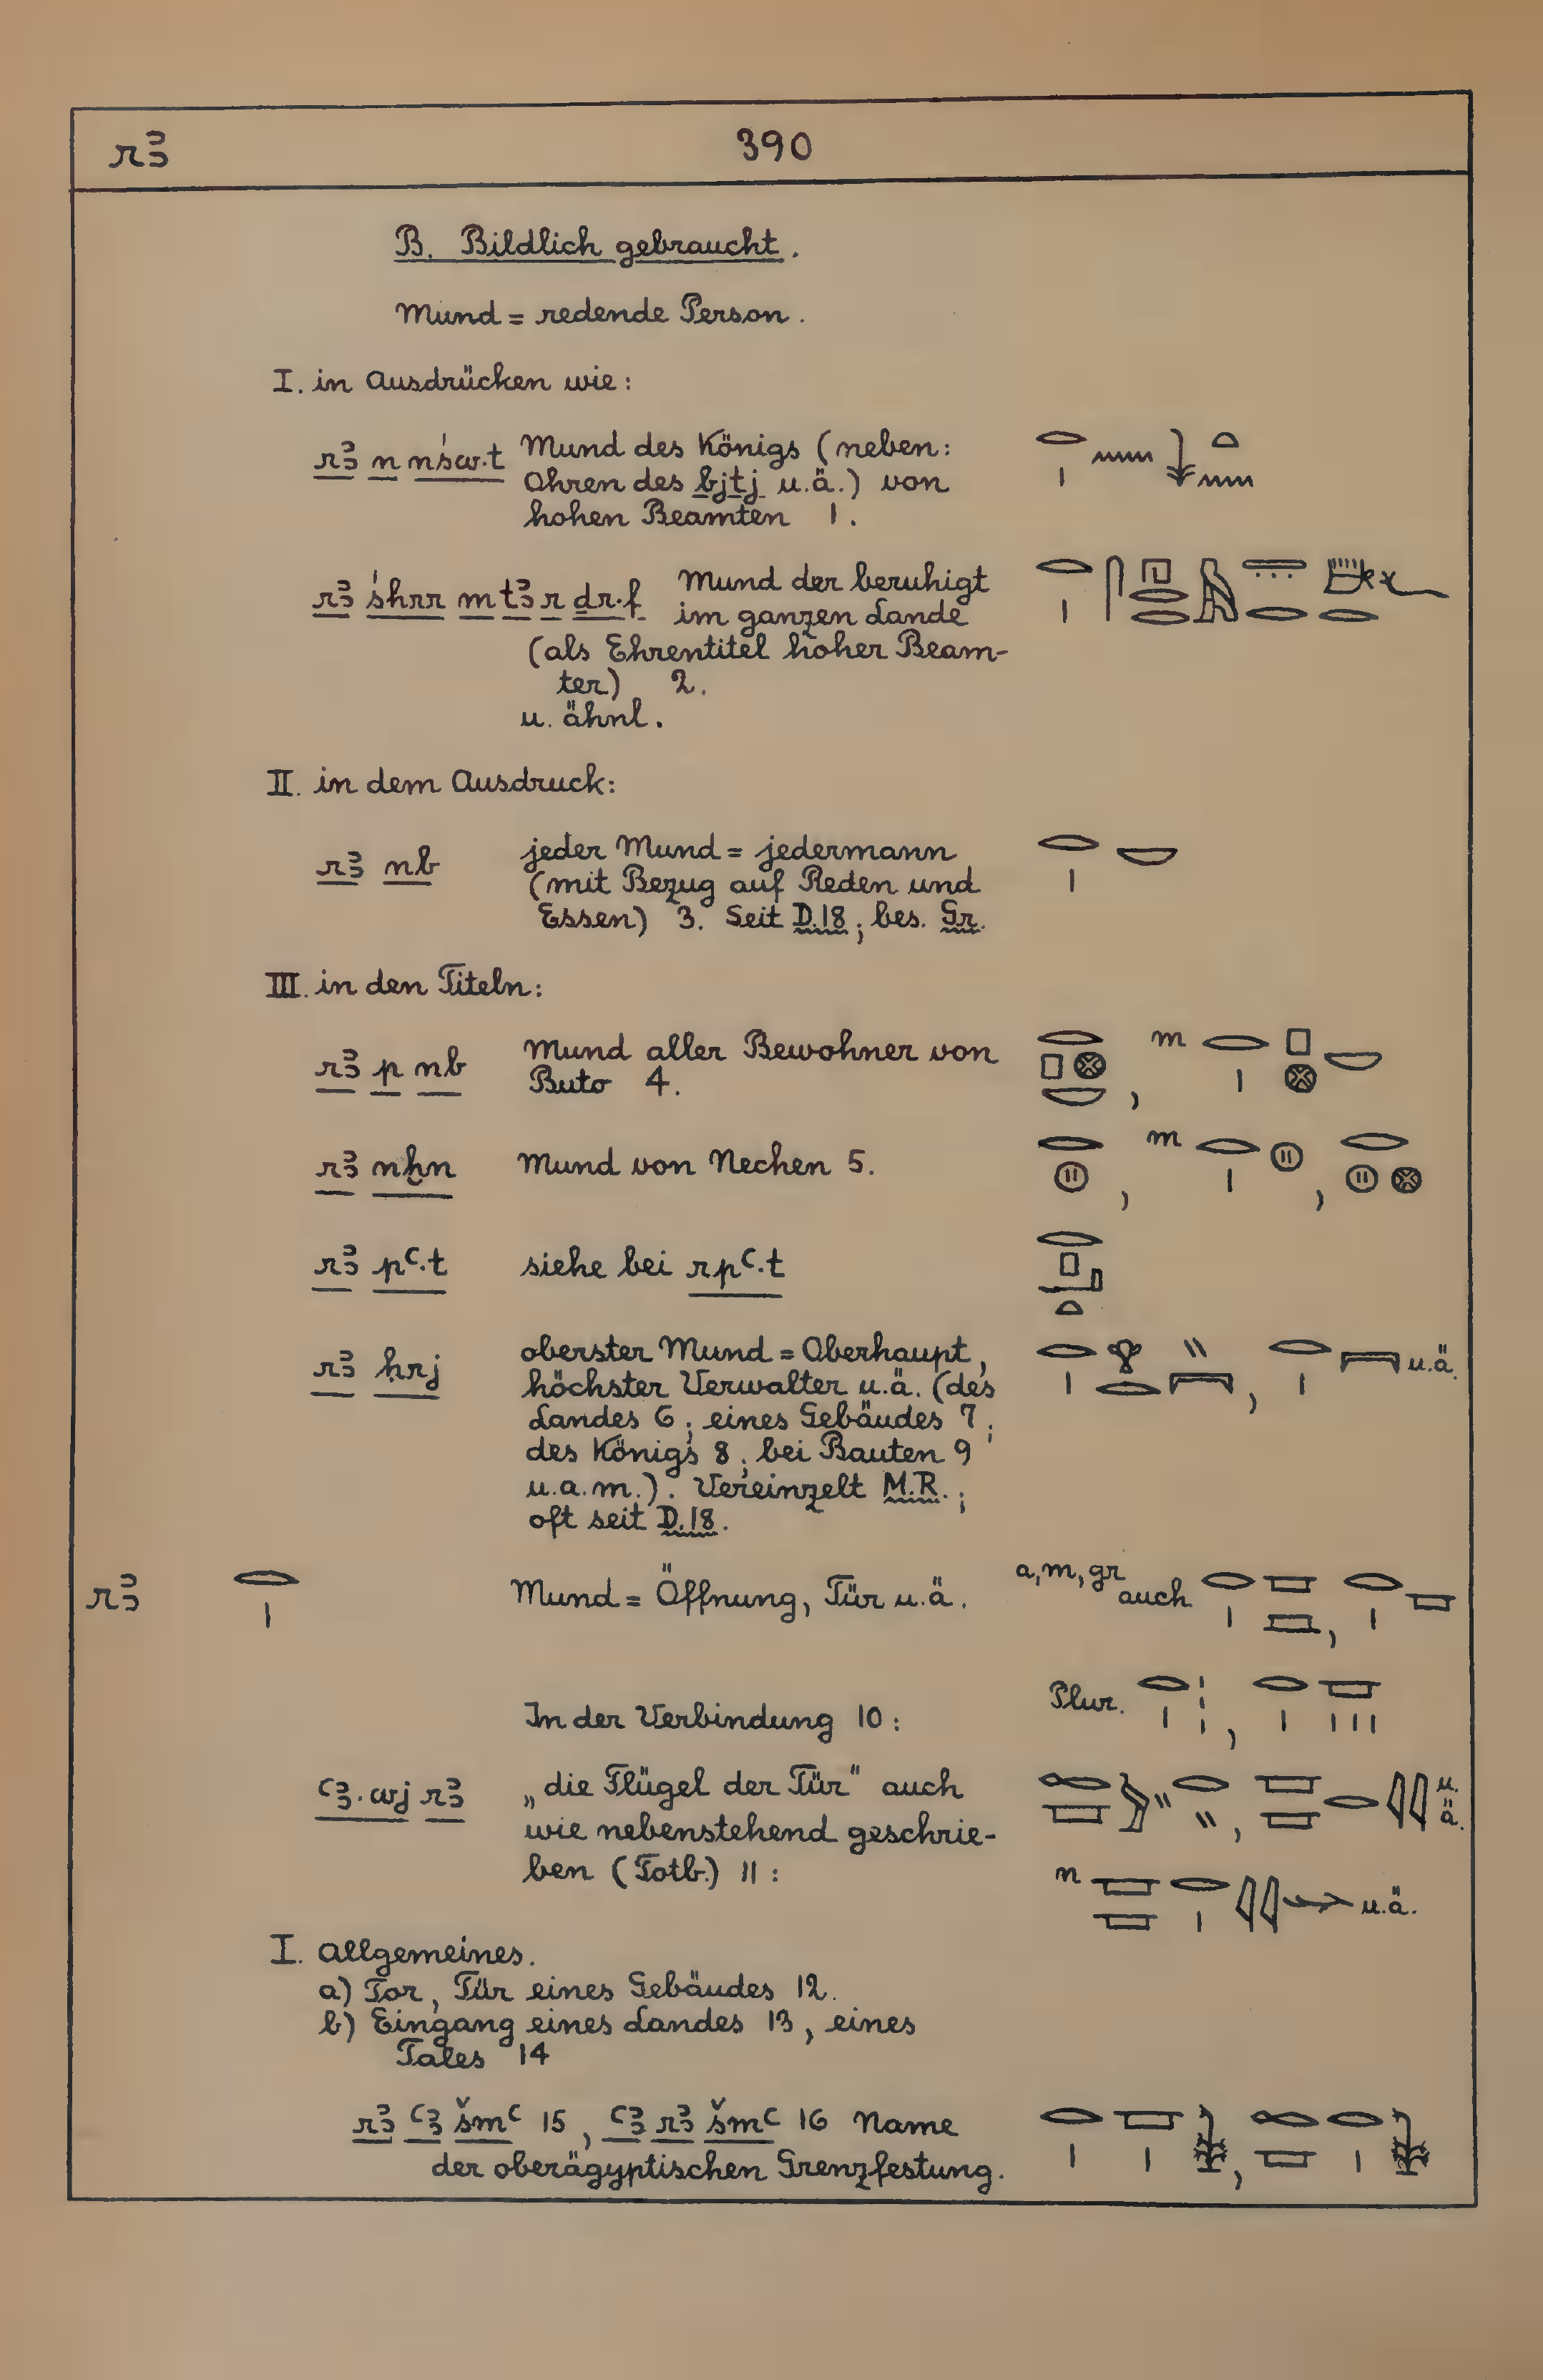 rꜣ 390
B. Bildlich gebraucht.
Mund = redende Person.
I. in Ausdrücken wie:
rꜣ n nśw.t Mund des Königs (neben:
Ohren des bjtj u.ä.) von
hohen Beamten 1.
rꜣ śhrr m tꜣ r ḏr.f Mund der beruhigt
im ganzen Lande
(als Ehrentitel hoher Beam-
ter) 2.
u. ähnl.
II. in dem Ausdruck:
rꜣ nb jeder Mund = jedermann
(mit Bezug auf Reden und
Essen) 3. Seit D.18; bes. Gr.
III. in den Titeln:
rꜣ p nb Mund aller Bewohner von , m
Buto 4.
rꜣ nḫn Mund von Nechen 5. , m ,
rꜣ pꜥ.t siehe bei rpꜥ.t
rꜣ ḥrj oberster Mund = Oberhaupt, , u.ä.
höchster Verwalter u.ä. (des
Landes 6; eines Gebäudes 7;
des Königs 8; bei Bauten 9
u.a.m.). Vereinzelt M.R.;
oft seit D.18.
rꜣ Mund = Öffnung, Tür u.ä. a, m, gr auch ,
Plur. ,
In der Verbindung 10:
ꜥꜣ.wj rꜣ „die Flügel der Tür" auch , u.ä.
wie nebenstehend geschrie-
ben (Totb.) 11: n u.ä.
I. allgemeines.
a) Tor, Tür eines Gebäudes 12.
b) Eingang eines Landes 13, eines
Tales 14
rꜣ ꜥꜣ šmꜥ 15, ꜥꜣ rꜣ šmꜥ 16 Name ,
der oberägyptischen Grenzfestung.